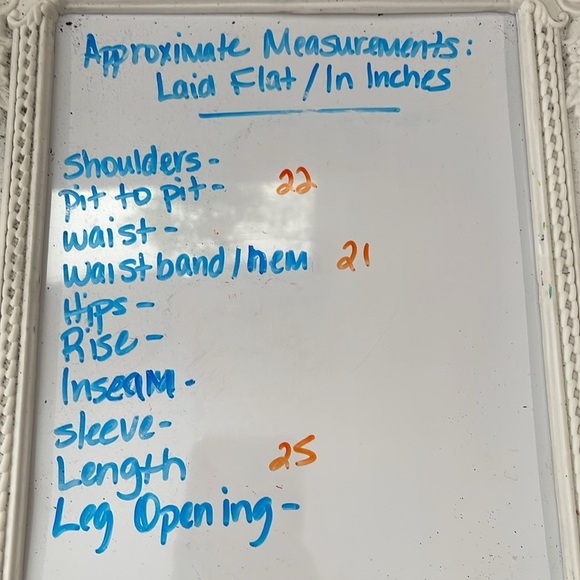 Approximate Measurements:
Laid Flat / In Inches
Shoulders -
pit to pit - 22
waist -
waistband / hem 21
Hips -
Rise -
Inseam -
sleeve -
Length 25
Leg Opening -